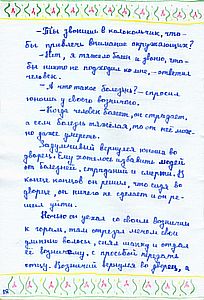 – Ты звонишь в колокольчик, что-
бы привлечь внимание окружающих?
– Нет, я тяжело болен и звоню, что-
бы никто не подходил ко мне, – ответил
человек.
– А что такое болезнь? – спросил
юноша у своего возничего.
– Когда человек болеет, он страдает,
а если болезнь тяжёлая, то от неё мож-
но даже умереть.
Задумчивый вернулся юноша во
дворец. Ему хотелось избавить людей
от болезней, страданий и смерти. В
конце концов он решил, что сидя во
дворце, он ничего не сделает и он ре-
шил уйти.
Ночью он уехал со своим возничим
к горам, там отрезал мечом свои
длинные волосы, снял шапку и отдал
её возничему, с просьбой передать
отцу. Возничий вернулся во дворец, а